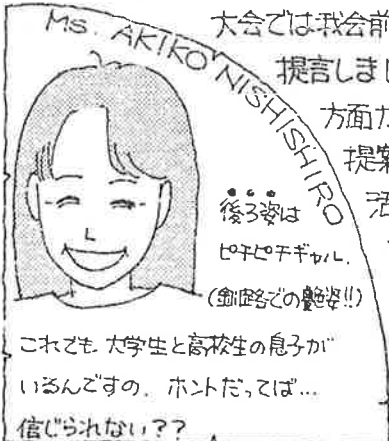 Ms. AKIKO NISHISHIRO
大会では我会前
提言しまし
方面
提案
活
後ろ姿は
ピチピチギャル.
(釧路での艶姿!!)
これでも 大学生と高校生の息子が
いるんですの. ホントだってば…
信じられない??